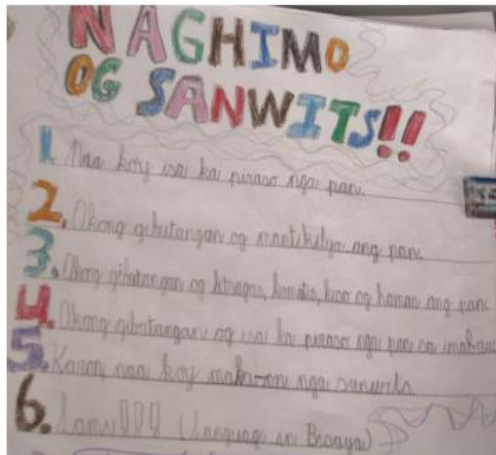 NAGHIMO
OG SANWITS!!
1. Naa koy isa ka piraso nga pan.
2. Okong gibutangan og mantikilya ang pan.
3. Okong gibutangan og litsugas, kamatis, keso og haman ang pan.
4. Okong gibutangan og isa ka piraso nga pan sa imabaw
5. Karon, naa koy makaon nga sanwits
6. Lami!!! (Language in Bisaya)